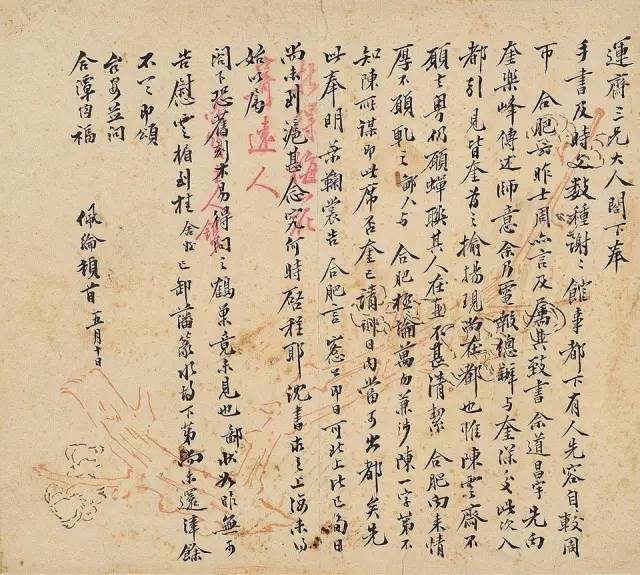 運齋三兄大人閣下奉
手書及時文數種謝謝館事都下有人先容自較周
帀合肥前昨士周亦言及屬其致書余道昌宇先向
奎樂峰傳述師意余乃電報總辦与奎深交此次入
都引見皆奎首之揄揚現尚在都也惟陳雲齋不
願去粤仍願蟬聯其人在直不甚清潔合肥向来情
厚不願軋之鄙人与合肥極論萬勿兼涉陳一字第不
知陳所謀即此席否奎已請訓日内當可出都矣先
此奉明葉鞠裳告合肥言窓公即日可北上比已旬日
尚未到滬甚念究何時啓程耶沈書求之上海未得
始以屬
閣下恐舊刻未易得聞之鶴巢竟未見也鄙狀如昨無可
告慰雲楣到桂已卸藩篆水的下第尚未還津餘
不一一即頌
台安並問
合潭因福
佩綸頓首五月十日